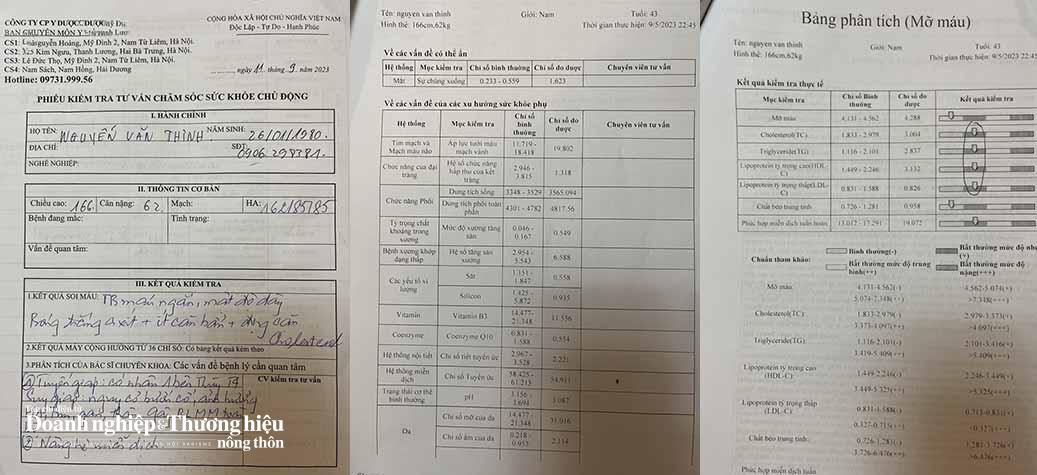 CÔNG TY CP Y DƯỢC
BAN CHUYÊN MÔN Y
CS1: Nguyễn Hoàng, Mỹ Đình 2, Nam Từ Liêm, Hà Nội.
CS2: 325 Kim Ngưu, Thanh Lương, Hai Bà Trưng, Hà Nội.
CS3: Lê Đức Thọ, Mỹ Đình 2, Nam Từ Liêm, Hà Nội.
CS4: Nam Sách, Nam Hồng, Hải Dương
Hotline: 09731.999.56
CỘNG HÒA XÃ HỘI CHỦ NGHĨA VIỆT NAM
Độc Lập - Tự Do - Hạnh Phúc
, ngày 11 tháng 9 năm 2023
PHIẾU KIỂM TRA TƯ VẤN CHĂM SÓC SỨC KHỎE CHỦ ĐỘNG
I. HÀNH CHÍNH
HỌ TÊN: NGUYỄN VĂN THỊNH NĂM SINH: 26/01/1980.
ĐỊA CHỈ: SĐT: 0906.298381.
NGHỀ NGHIỆP:
II. THÔNG TIN CƠ BẢN
Chiều cao: 166. Cân nặng: 62. Mạch: HA: 162/85/85
Bệnh đang mắc: Tình trạng:
Vấn đề quan tâm:
III. KẾT QUẢ KIỂM TRA
1.KẾT QUẢ SOI MÁU: TB máu ngắn, mật độ dày
Bóng trắng axit + ít cặn bẩn + dạng cặn
Cholesterol
2.KẾT QUẢ MÁY CỘNG HƯỞNG TỪ 36 CHỈ SỐ: Có bảng kết quả kèm theo
3.PHÂN TÍCH CỦA BÁC SĨ CHUYÊN KHOA: Các vấn đề bệnh lý cần quan tâm
CV kiểm tra tư vấn
① Tuyến giáp: có nhân 1 bên Thùy
Suy giáp nguy cơ bướu cổ, ảnh hưởng
②
Tạp chí điện tử
Doanh nghiệp&Thương hiệu
nông thôn
Tên: nguyen van thinh Giới: Nam Tuổi: 43
Hình thể: 166cm,62kg Thời gian thực hiện: 9/5/2023 22:45
Về các vấn đề có thể ẩn
Hệ thống Mục kiểm tra Chỉ số bình thường Chỉ số đo được Chuyên viên tư vấn
Mắt Sự chùng xuống 0.233 - 0.559 1.623
Về các vấn đề của các xu hướng sức khỏe phụ
Hệ thống Mục kiểm tra Chỉ số bình thường Chỉ số đo được Chuyên viên tư vấn
Tim mạch và Mạch máu não Áp lực tưới máu mạch vành 11.719 - 18.418 19.802
Chức năng của đại tràng Hệ số chức năng hấp thu của kết tràng 2.946 - 3.815 1.318
Chức năng Phổi Dung tích sống 3348 - 3529 3565.094
Dung tích phổi toàn phần 4301 - 4782 4817.56
Tỷ trọng chất khoáng trong xương Mức độ xương tăng sản 0.046 - 0.167 0.549
Bệnh xương khớp dạng thấp Hệ số tăng sản xương 2.954 - 5.543 6.588
Các yếu tố vi lượng Sắt 1.151 - 1.847 0.558
Silicon 1.425 - 5.872 0.935
Vitamin Vitamin B3 14.477- 21.348 11.556
Coenzyme Coenzyme Q10 0.831 - 1.588 0.554
Hệ thống nội tiết Chỉ số tiết tuyến ức 2.967 - 3.528 2.221
Hệ thống miễn dịch Chỉ số Tuyến ức 58.425 - 61.213 54.911
Trạng thái cơ thể bình thường pH 3.156 - 3.694 3.087
Da Chỉ số mỡ của da 14.477 - 21.348 31.916
Chỉ số ẩm của da 0.218 - 0.953 2.114
Bảng phân tích (Mỡ máu)
Tên: nguyen van thinh Giới: Nam Tuổi: 43
Hình thể: 166cm,62kg Thời gian thực hiện: 9/5/2023 22:45
Kết quả kiểm tra thực tế
Mục kiểm tra Chỉ số Bình thường Chỉ số đo được Kết quả kiểm tra
Mỡ máu 4.131 - 4.562 4.288
Cholesterol(TC) 1.833 - 2.979 3.004
Triglyceride(TG) 1.116 - 2.101 2.837
Lipoprotein tỷ trọng cao(HDL-C) 1.449 - 2.246 3.332
Lipoprotein tỷ trọng thấp(LDL-C) 0.831 - 1.588 0.826
Chất béo trung tính 0.726 - 1.281 0.958
Phức hợp miễn dịch tuần hoàn 13.012 - 17.291 19.072
Chuẩn tham khảo:
Bình thường(-)
Bất thường mức độ nhẹ(+)
Bất thường mức độ trung bình(++)
Bất thường mức độ nặng(+++)
Mỡ máu: 4.131-4.562(-) 4.562-5.074(+)
5.074-7.348(++) >7.348(+++)
Cholesterol(TC): 1.833-2.979(-) 2.979-3.373(+)
3.373-4.097(++) >4.097(+++)
Triglyceride(TG): 1.116-2.101(-) 2.101-3.419(+)
3.419-5.409(++) >5.409(+++)
Lipoprotein tỷ trọng cao (HDL-C): 1.449-2.246(-) 2.246-3.449(+)
3.449-5.325(++) >5.325(+++)
Lipoprotein tỷ trọng thấp (LDL-C): 0.831-1.588(-) 0.715-0.831(+)
0.327-0.715(++) <0.327(+++)
Chất béo trung tính: 0.726-1.281(-) 1.281-3.726(+)
3.726-6.476(++) >6.476(+++)
Phức hợp miễn dịch tuần